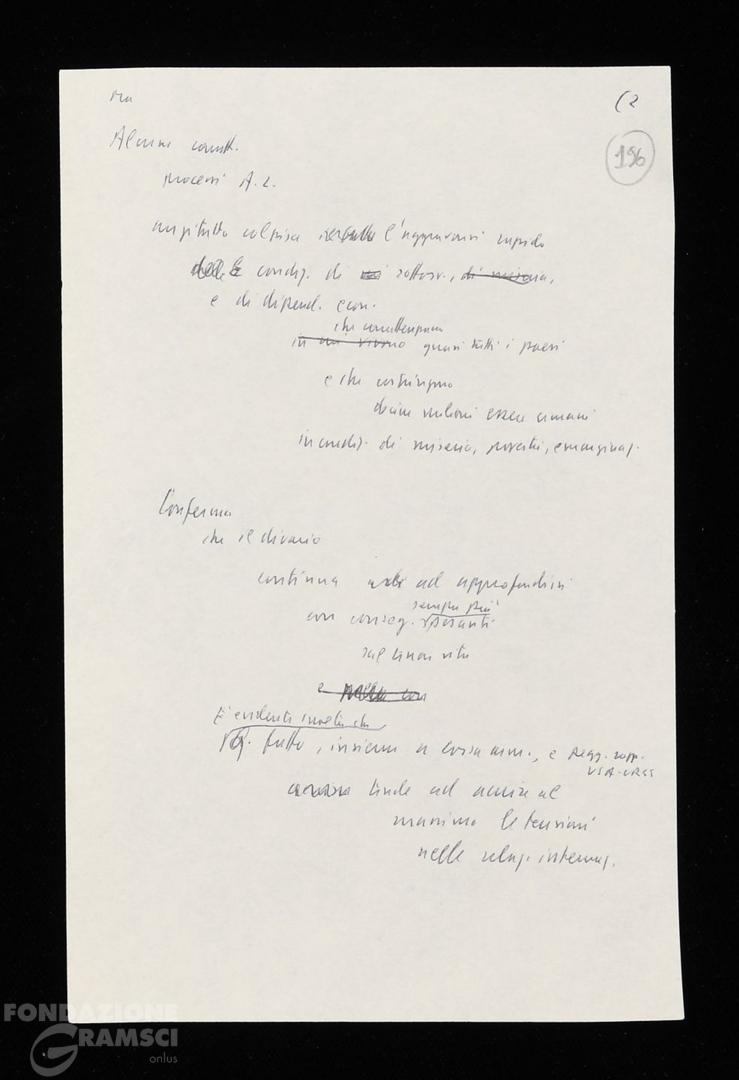 ma
(2
196
Alcune caratt.
processi A.L.
anzitutto colpisce l'aggravarsi rapido
delle condiz. di sottosv., di miseria,
e di dipend. econ.
che caratterizzano
in cui vivono quasi tutti i paesi
e che costringono
decine milioni esseri umani
in condiz. di miseria, povertà, emarginaz.
Conferma
che il divario
continua ad approfondirsi
sempre più
con conseg. pesanti
sul tenor vita
e nelle con
È evidente inoltre che
Q. fatto, insieme a corsa arm., e pegg. rapp.
USA-URSS
tende ad acuire al
massimo le tensioni
nelle relaz. internaz.
FONDAZIONE
GRAMSCI
onlus